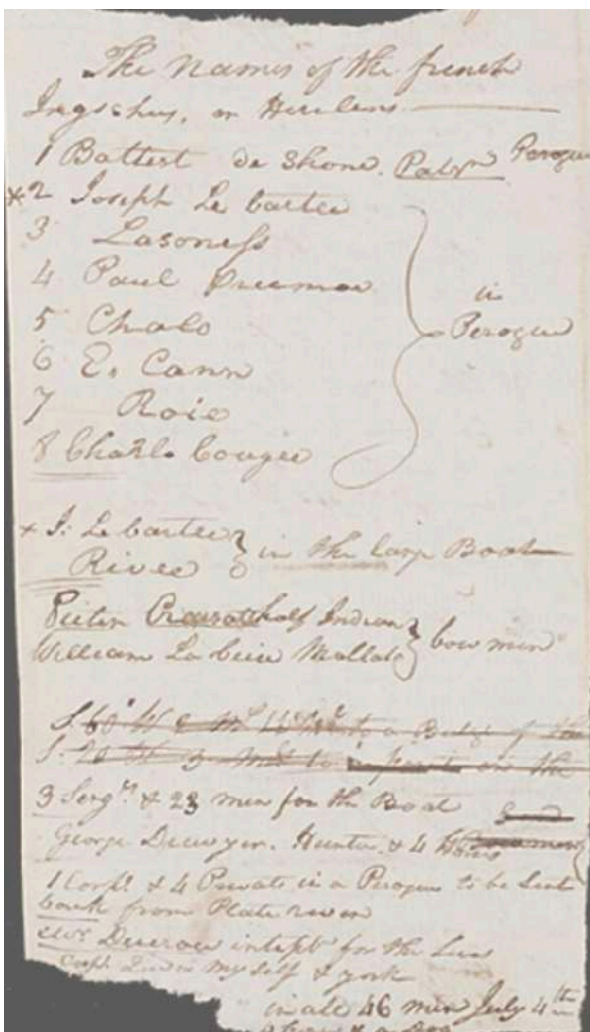 The Names of the french
Ingishues, or Hirelens
1 Battest de Shone. Patn Perogue
*2 Joseph Le bartee
3 Lasoness
4 Paul Preemor
5 Chalo
6 E. Cann
7 Roie
8 Charlo Cougee
in
Perogue
* J: Le bartee
Rivee
in the large Boat
Peeter Crusatt half Indian
William La beice Mallat
bow men
S. 60° W 2 to a Belge of the
S. 20 W 3 Mls to a point on the
3 Sergts & 23 men for the Boat
George Drewyer. Hunter & 4 Horses
1 Corpl & 4 Privates in a Perogue to be Sent
back from Plate river
Mr. Dueron intept for the Sues
Capt. Lewis my self & york
in all 46 men July 4th